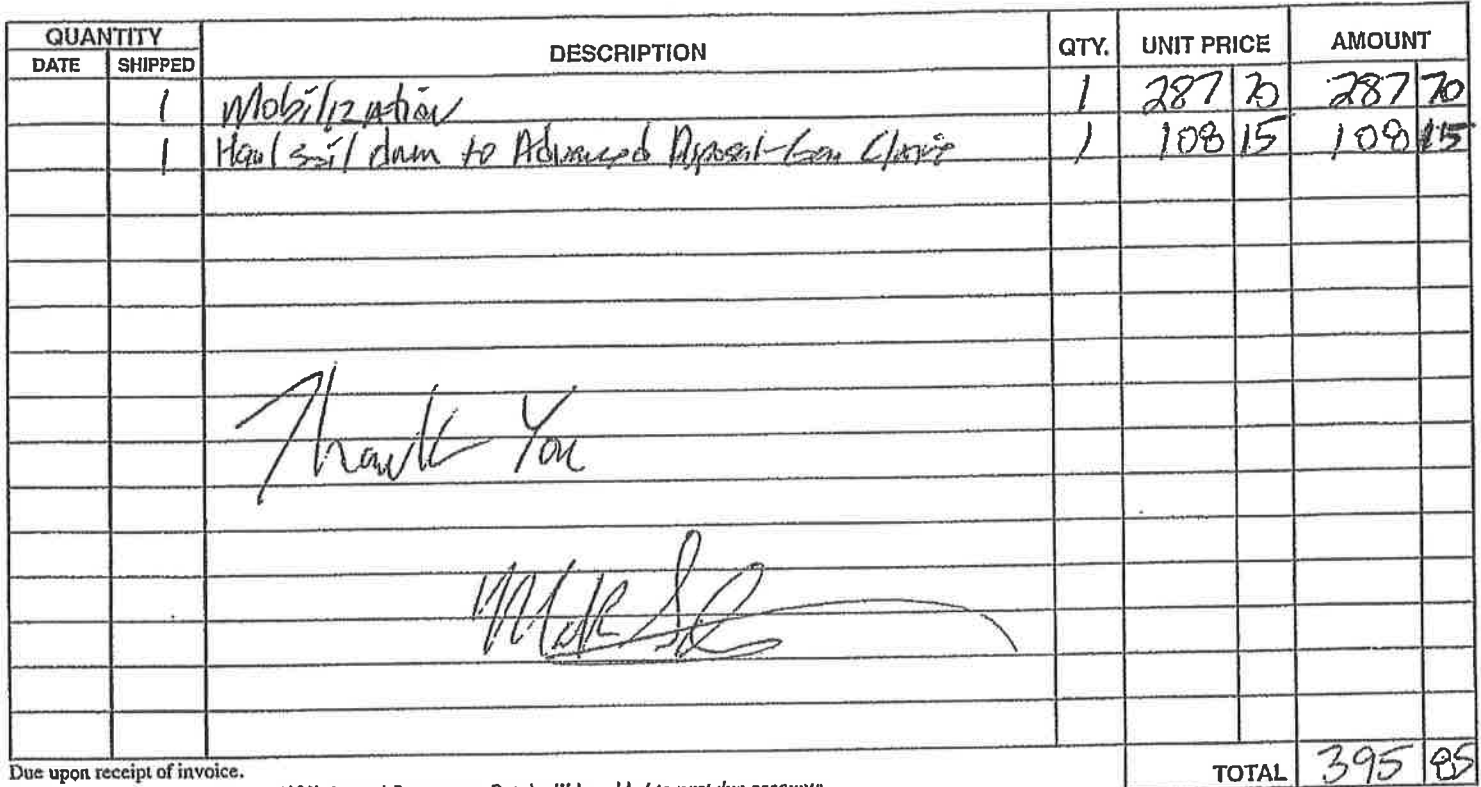 QUANTITY DESCRIPTION QTY. UNIT PRICE AMOUNT
DATE SHIPPED
1 Mobilization 1 287 70 287 70
1 Haul soil drum to Advanced Disposal- Eau Claire 1 108 15 108 15
Thank You
Due upon receipt of invoice.
TOTAL 395 85